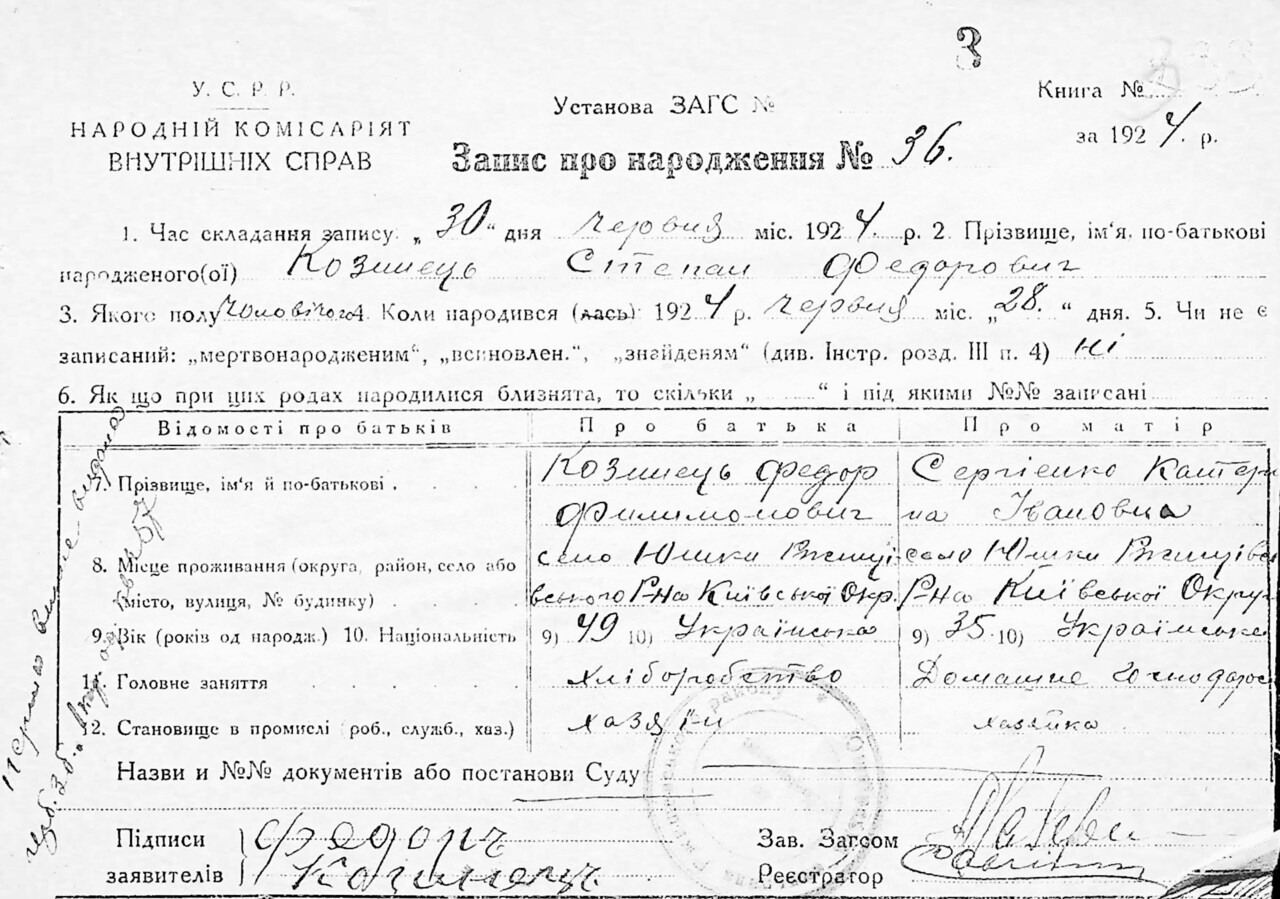 3
У. С. Р. Р.
НАРОДНІЙ КОМІСАРІЯТ
ВНУТРІШНІХ СПРАВ
Установа ЗАГС №
Книга №
за 1924. р.
Запис про народження № 36.
1. Час складання запису: „30“ дня червня міс. 1924. р. 2. Прізвище, ім'я, по-батькові
народженого(ої) Козимець Степан Федорович
3. Якого полу Чоловічого 4. Коли народився (лась): 1924 р. червня міс. „28.“ дня. 5. Чи не є
записаний: „мертвонародженим“, „всиновлен.“, „знайденям“ (див. Інстр. розд. III п. 4) ні
6. Як що при цих родах народилися близнята, то скільки „ “ і під якими №№ записані
Відомості про батьків Про батька Про матір
7. Прізвище, ім'я й по-батькові . Козимець Федор Сергієнко Катери
Филимонович на Івановна
8. Місце проживання (округа, район, село або село Юшки Ржищі- село Юшки Ржищівс
(місто, вулиця, № будинку) вського Р-на Київської Окр. Р-на Київської Округ
9. Вік (років од народж.) 10. Національність 9) 49 10) Українська 9) 35 10) Українське
11. Головне заняття хліборобство Домашнє Господарс
12. Становище в промислі (роб., служб., хаз.) хазяїн хазяйка
Назви и №№ документів або постанови Суду
Підписи Федоръ Зав. Загсом
заявителів Козимець Реєстратор